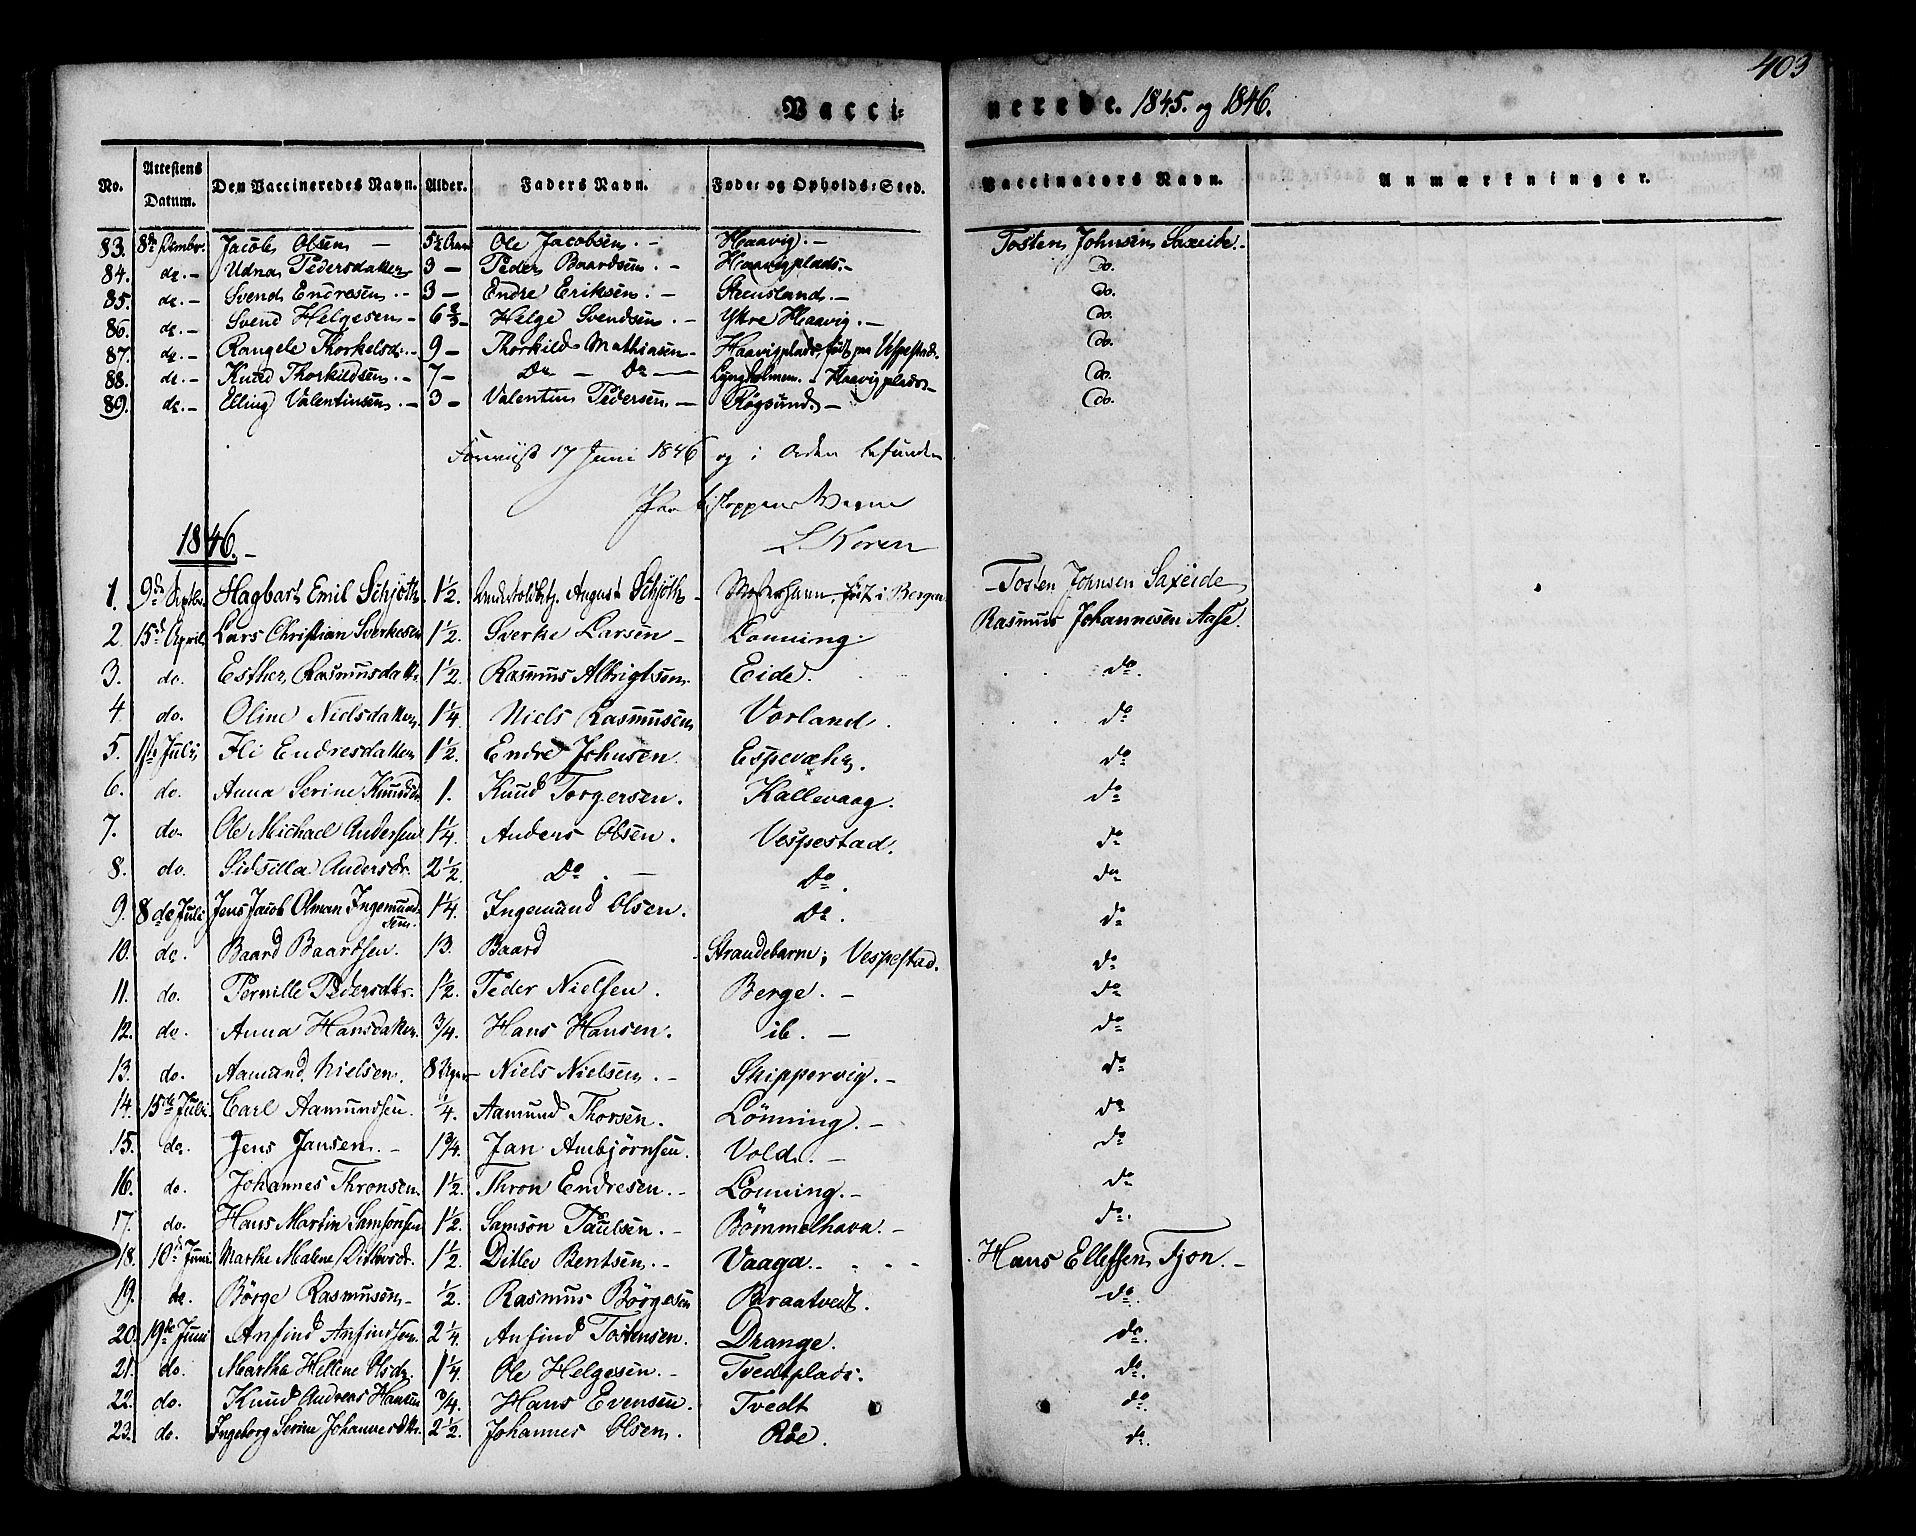 403
Vacci- nerede. 1845. og 1846.
No. Attestens Datum. Den Vaccineredes Navn. Alder. Faders Navn. Føde- og Opholds-Sted. Vaccinators Navn. Anmærkninger.
83. 8de Dcmbr. Jacob Olsen — 5½ Aar Ole Jacobsen. — Haavig. — Tosten Johnsen Saxeide. -
84. do. — Udna Pedersdatter 3 — Peder Baardsen. — Haavigplads. — Do.
85. do. — Svend Endresen. — 3 — Endre Eriksen. — Steensland. — Do.
86. do. — Svend Helgesen — 6⅔ — Helge Svendsen. — Ytre Haavig. — Do.
87. do. — Rangele Thorkelsd. — 9 — Thorkild Mathiasen — Haavigplads, født paa Vespestad. Do.
88. do. — Knud Thorkildsen. — 7 — Do — Do — Lyngholmen. — Haavigplads — Do.
89. do. — Elling Valentinsen. — 3 — Valentin Pedersen. — Røgsund — Do.
Foreviist 17 Juni 1846 og i Orden befunden
Paa Bispens Vegne
L Koren
1846. —
1. 9de Septbr. Hagbart Emil Schjøth. 1½. August Schjøth — Mosterhavn, født i Bergen Tosten Johnsen Saxeide
2 15d April. Lars Christian Sverkesen 1½. Sverke Larsen — Lonning. Rasmus Johannesen Aase.
3. do. Esther Rasmusdatter 1½. Rasmus Albrigtsen. Eide. do.
4. do. Oline Nielsdatter 1¼. Niels Rasmusen Vorland. do
5. 1ste Juli Eli Endresdatter 1½. Endre Johnsen. Espevæhr. do
6. do. Anna Serine Knudsd. 1. Knud Torgersen. Kallevaag. do
7. do. Ole Michael Andersen 1¼. Anders Olsen. Vespestad. do
8. do. Sidsilla Andersdr. 2½. Do. — Do. do
9. 8de Juli Jens Jacob Olman Ingemundsen. 1¼. Ingemund Olsen. Do. do
10. do. Baard Baardsen. 13. Baard Strandebarm; Vespestad. do
11. do. Pernille Pedersdtr. 1½. Peder Nielsen. Berge. — do
12. do. Anna Hansdatter. ¾. Hans Hansen. ib. — do
13. do. Aamund Nielsen. 8 Uger — Niels Nielsen. — Skippervig. — do
14. 15de Juli. Carl Aamundsen. ¼. Aamund Thorsen. Lönning. — do
15. do. Jens Jansen. — 1¾. Jan Ambjörnsen. Vold. — do
16. do. Johannes Thronsen. 1½. Thron Endresen. — Lonning. — do
17. do. Hans Martin Samsonsen 1½. Samson Paulsen. — Bömmelhavn. — do.
18. 10de Juni Marthe Malene Ditlevsdr. 1½. Ditlev Bentsen. — Vaaga. Hans Ellefsen Tjon. —
19. do. Börge Rasmusen — ½. Rasmus Börgesen Braatvedt. do.
20. 19de Juni Anfind Anfindsen. 2¼. Anfind Tostensen. Drange. do.
21. do. Martha Hellene Olsdr. 1¼. Ole Helgesen. — Tvedtplads. do.
22. do. Knud Andreas Hansen ¾. Hans Evensen. Tvedt do.
23. do. Ingeborg Serine Johannesdtr. 2½. Johannes Olsen. Röe. do.